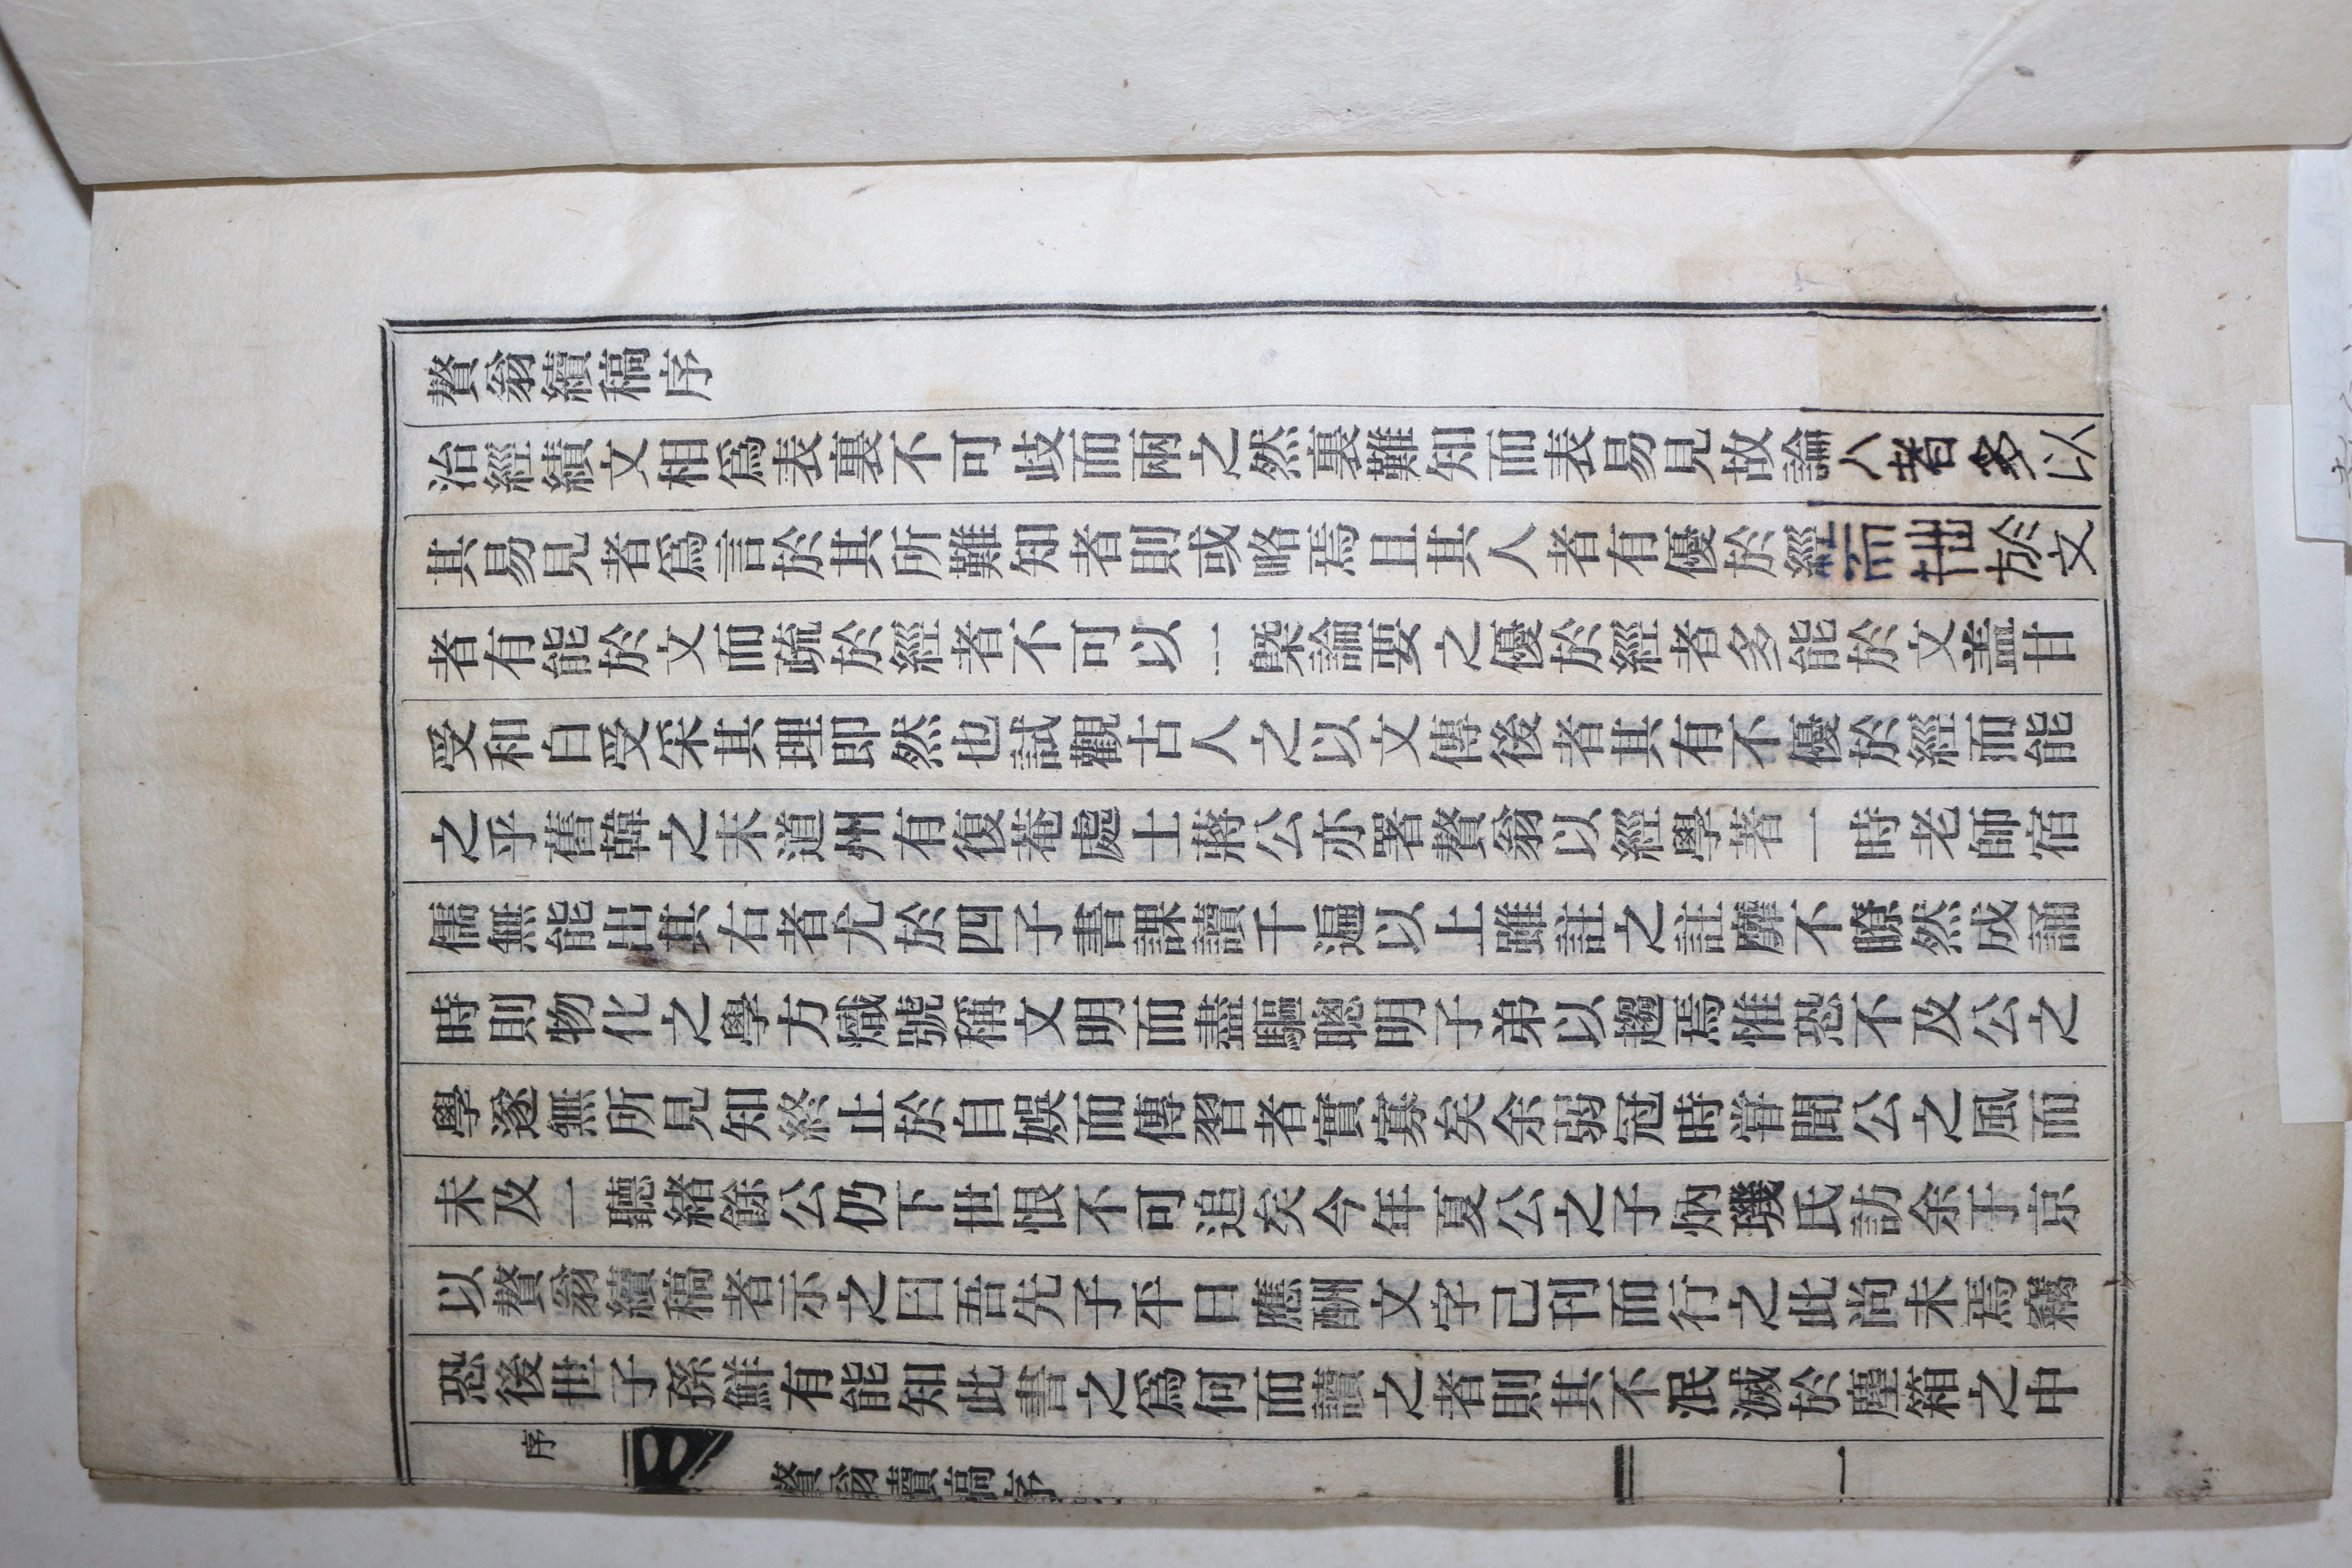 贅翁續稿序
治經績文相爲表裏不可歧而兩之然裏難知而表易見故論人者多以
其易見者爲言於其所難知者則或略焉且其人者有優於經而拙於文
者有能於文而疏於經者不可以一槩論要之優於經者多能於文盖甘
受和白受采其理即然也試觀古人之以文傳後者其有不優於經而能
之乎舊韓之末道州有復菴處士蔣公亦署贅翁以經學著一時老師宿
儒無能出其右者尤於四子書課讀千遍以上雖註之註靡不瞭然成誦
時則物化之學方熾號稱文明而盡驅聰明子弟以趨焉惟恐不及公之
學遂無所見知終止於自娛而傳習者實寡矣余弱冠時甞聞公之風而
未及一聽緒餘公仍下世恨不可追矣今年夏公之子炳璣氏訪余于京
以贅翁續稿者示之曰吾先子平日應酬文字己刊而行之此尚未焉竊
恐後世子孫鮮有能知此書之爲何而讀之者則其不泯滅於塵箱之中
序
贅翁續稿序
一